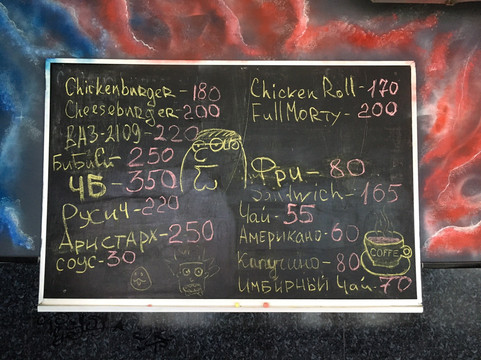 Chickenburger - 180
Cheeseburger - 200
ВАЗ-2109 - 220
БиБиСи 250
ЧБ - 350
Русич - 220
Аристарх - 250
соус - 30
Chicken Roll - 170
Full Morty - 200
Фри - 80
Sandwich - 165
Чай - 55
Американо - 60
Капучино - 80
ИМБИРНЫЙ Чай - 70
COFFE